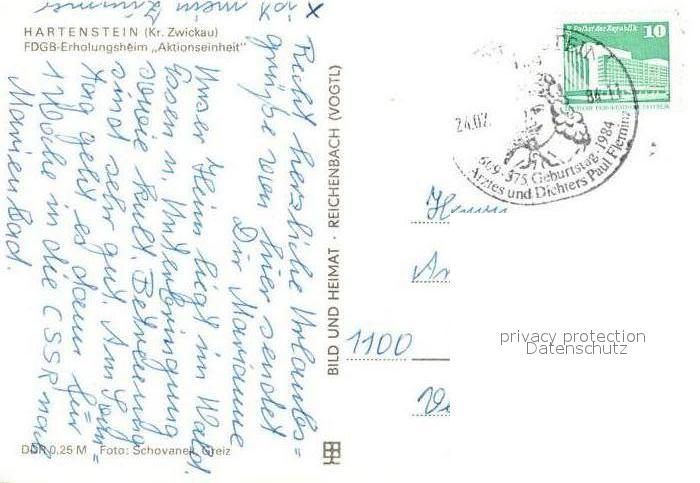 x
ist mein Zimmer
HARTENSTEIN (Kr. Zwickau)
FDGB-Erholungsheim „Aktionseinheit"
Recht herzliche Urlaubs=
grüße von hier sendet
Dir Marianne
Unser Heim liegt im Wald.
Essen u. Unterbringung
sowie kult. Betreuung
sind sehr gut. Am Sonn=
tag geht es dann für
1 Woche in die CSSR nach
Marienbad.
DDR 0,25 M Foto: Schovanek, Greiz
BILD UND HEIMAT · REICHENBACH (VOGTL)
Palast der Republik 10
24.02. 84-11
1609 · 375. Geburtstag · 1984
Arztes und Dichters Paul Fleming
1100
privacy protection
Datenschutz